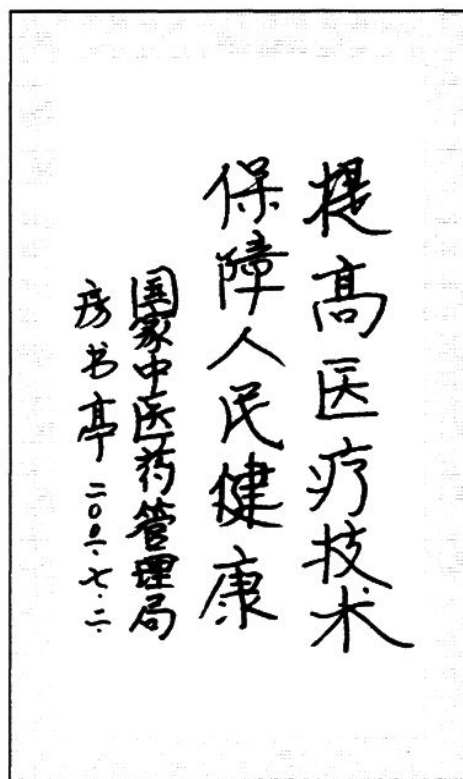 提高医疗技术
保障人民健康
国家中医药管理局
房书亭 二〇〇一.七.二.